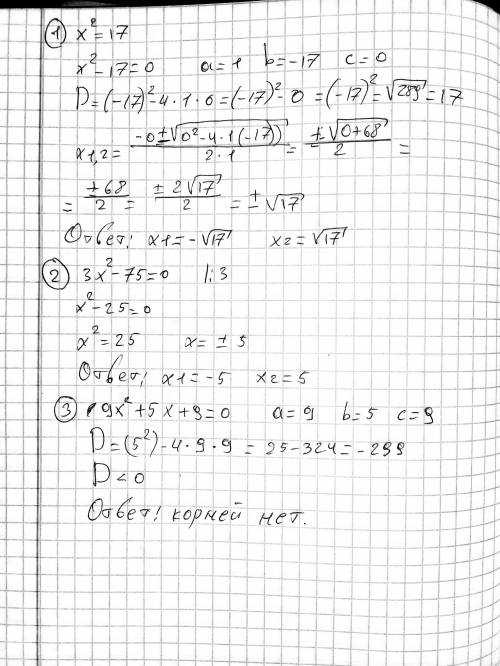 ① x² = 17
x² - 17 = 0 a = 1 b = -17 c = 0
D = (-17)² - 4 · 1 · 0 = (-17)² - 0 = (-17)² = √289 = 17
x1,2 = (-0 ± √(0² - 4 · 1 (-17))) / (2 · 1) = (± √(0 + 68)) / 2 =
= (± 68) / 2 = (± 2√17) / 2 = ± √17
Ответ: x1 = -√17 x2 = √17
② 3x² - 75 = 0 |: 3
x² - 25 = 0
x² = 25 x = ± 5
Ответ: x1 = -5 x2 = 5
③ 9x² + 5x + 9 = 0 a = 9 b = 5 c = 9
D = (5²) - 4 · 9 · 9 = 25 - 324 = -299
D < 0
Ответ: корней нет.